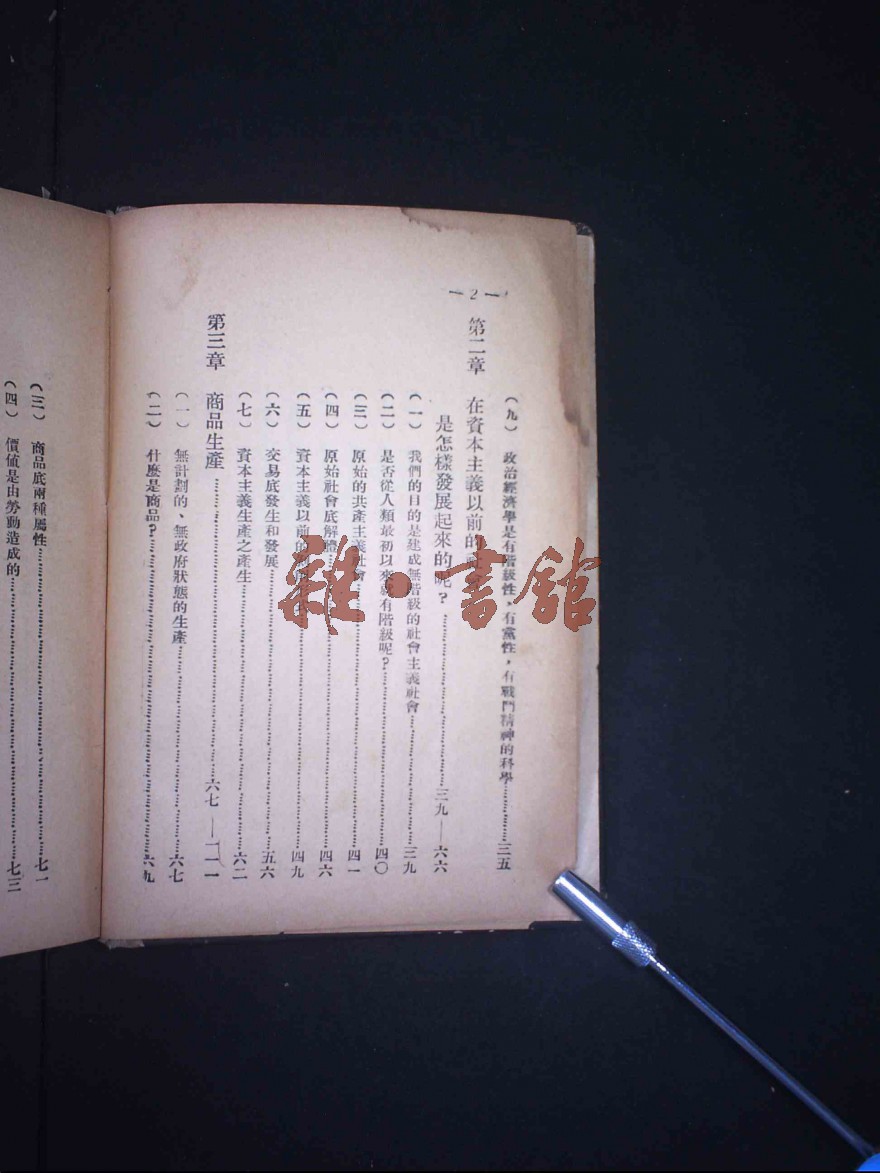 — 2 —
（九） 政治經濟學是有階級性，有黨性，有戰鬥精神的科學……三五
第二章 在資本主義以前的社會
是怎樣發展起來的呢？……三九—六六
（一） 我們的目的是建成無階級的社會主義社會……三九
（二） 是否從人類最初以來就有階級呢？……四〇
（三） 原始的共產主義社會……四一
（四） 原始社會底解體……四六
（五） 資本主義以前的……四九
（六） 交易底發生和發展……五六
（七） 資本主義生產之產生……六二
第三章 商品生產……六七—一一一
（一） 無計劃的、無政府狀態的生產……六七
（二） 什麼是商品？……六九
（三） 商品底兩種屬性……七一
（四） 價值是由勞動造成的……七三
雜·書館